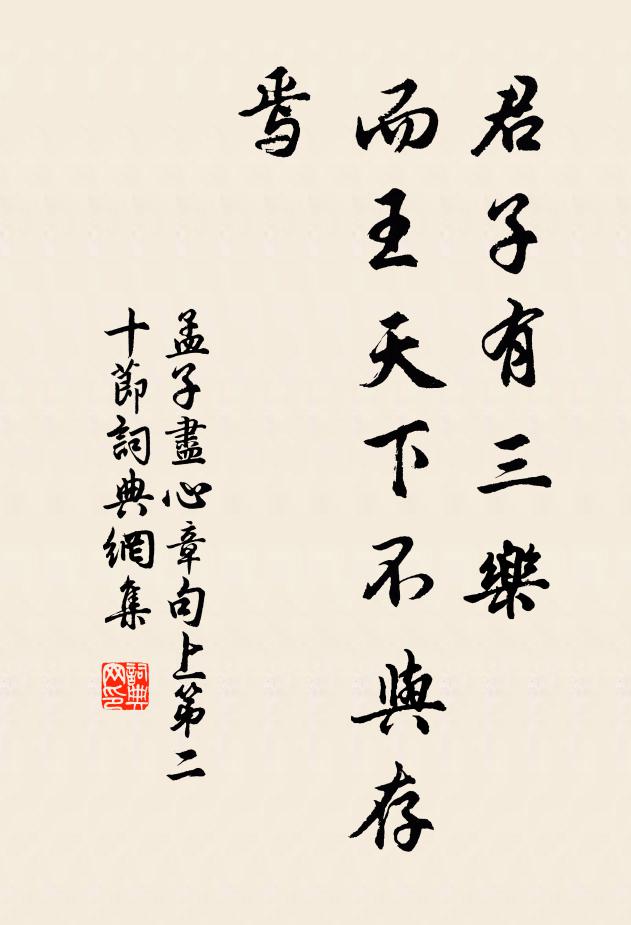 君子有三樂
而王天下不與存
焉
孟子盡心章句上第二
十節詞典網集
詞典
网印